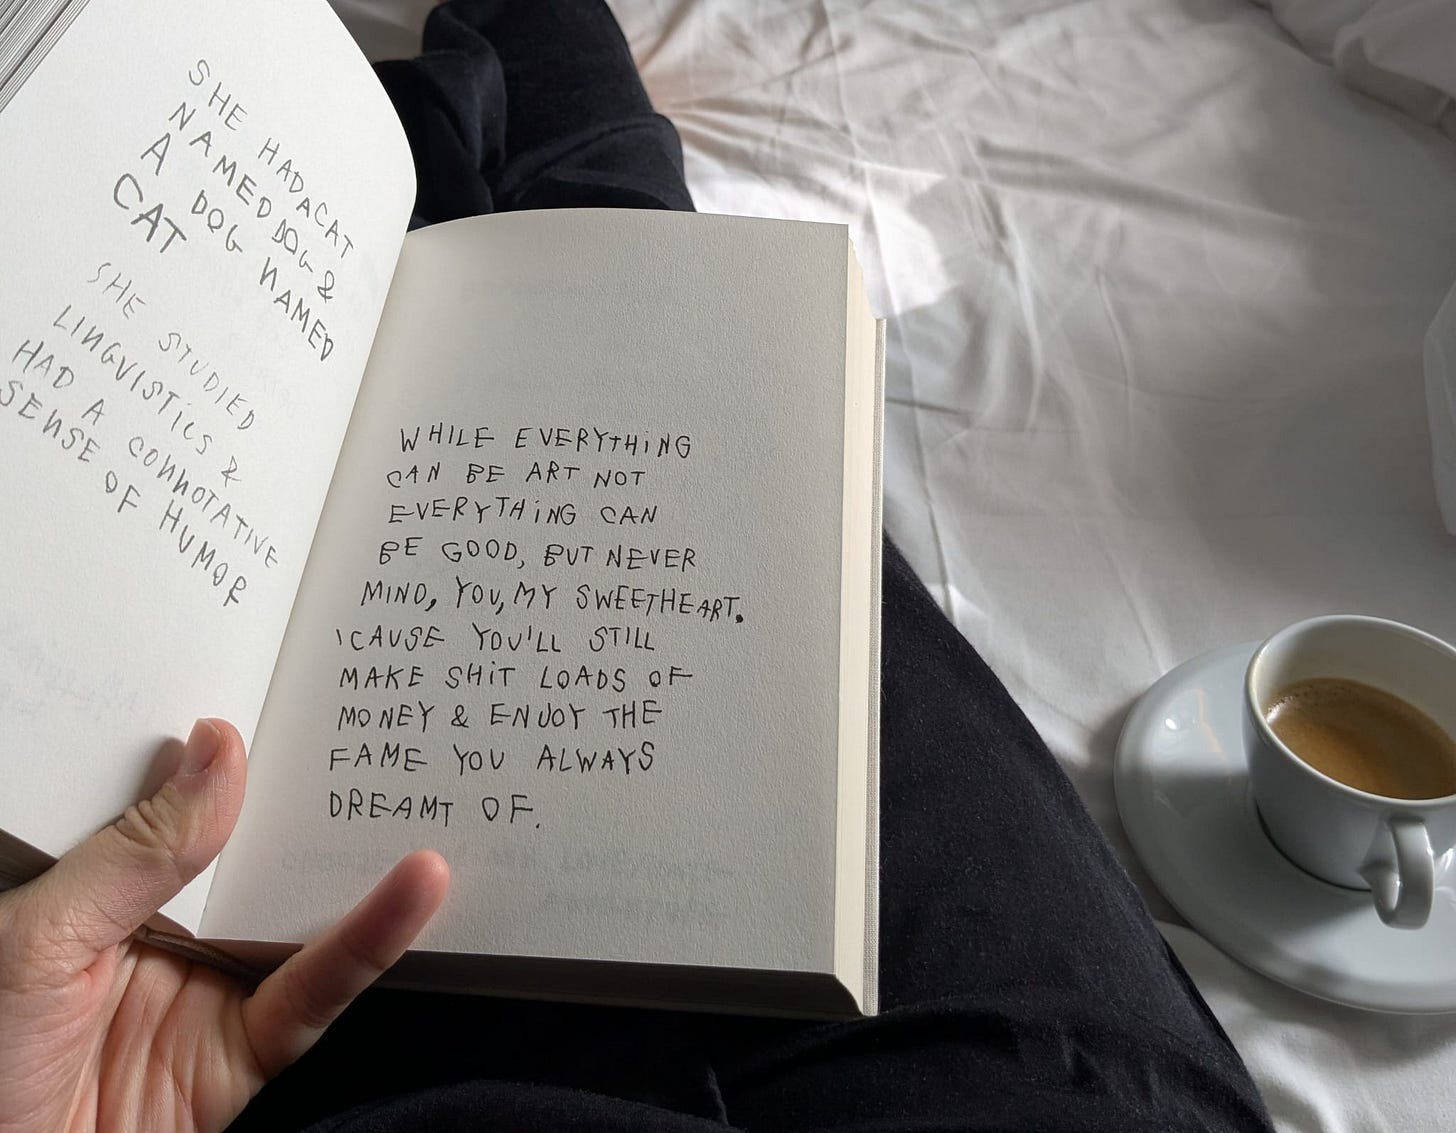 SHE HAD A CAT
NAMED DOG &
A DOG NAMED
CAT
SHE STUDIED
LINGVISTICS &
HAD A CONNOTATIVE
SENSE OF HUMOR
WHILE EVERYTHING
CAN BE ART NOT
EVERYTHING CAN
BE GOOD, BUT NEVER
MIND, YOU, MY SWEETHEART.
'CAUSE YOU'LL STILL
MAKE SHIT LOADS OF
MONEY & ENJOY THE
FAME YOU ALWAYS
DREAMT OF.